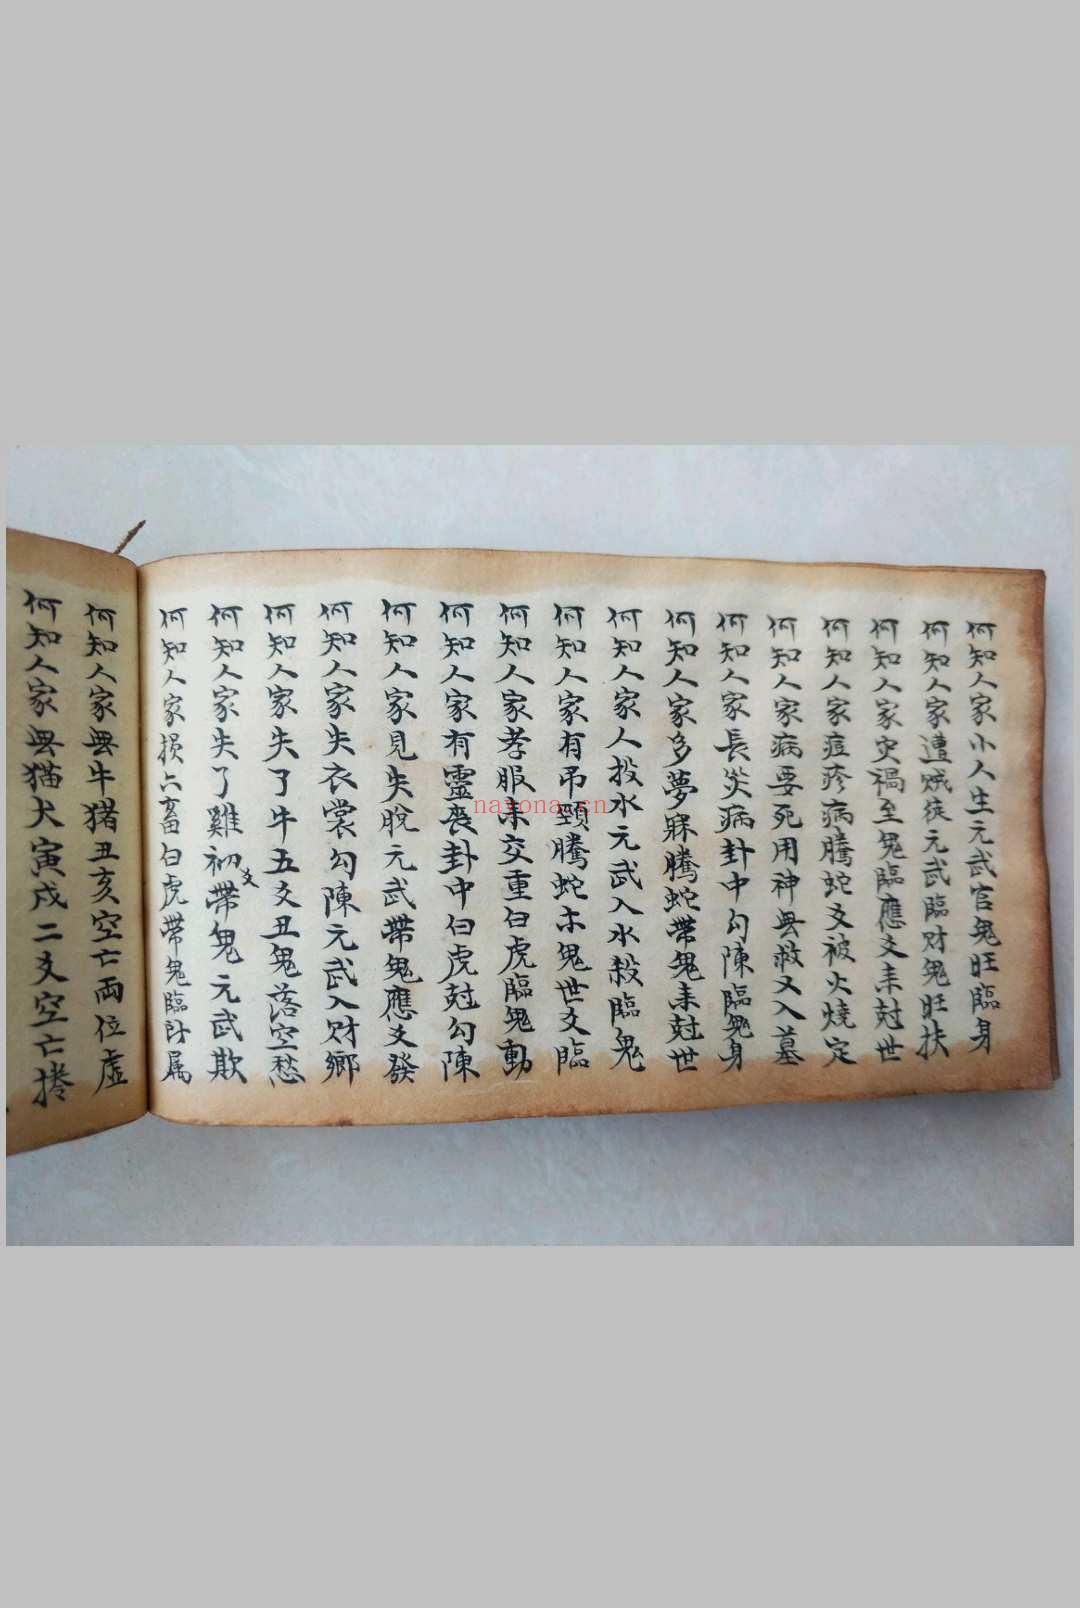 何知人家小人生元武官鬼旺臨身
何知人家遭贼徒元武臨财鬼旺扶
何知人家灾禍至鬼臨應爻来尅世
何知人家痘疹病騰蛇爻被火燒定
何知人家病要死用神無救又入墓
何知人家長炎病卦中勾陳臨鬼身
何知人家多夢寐騰蛇帶鬼来尅世
何知人家人投水元武入水殺臨鬼
何知人家有吊頸騰蛇木鬼世爻臨
何知人家孝服来交重白虎臨鬼動
何知人家有靈喪卦中白虎尅勾陳
何知人家見失脫元武帶鬼應爻發
何知人家失衣裳勾陳元武入财鄉
何知人家失了牛五爻丑鬼落空愁
何知人家失了雞初爻帶鬼元武欺
何知人家损六畜白虎帶鬼臨财属
何知人家無牛猪丑亥空亡両位虚
何知人家無猫犬寅戍二爻空亡捲
nayona.cn